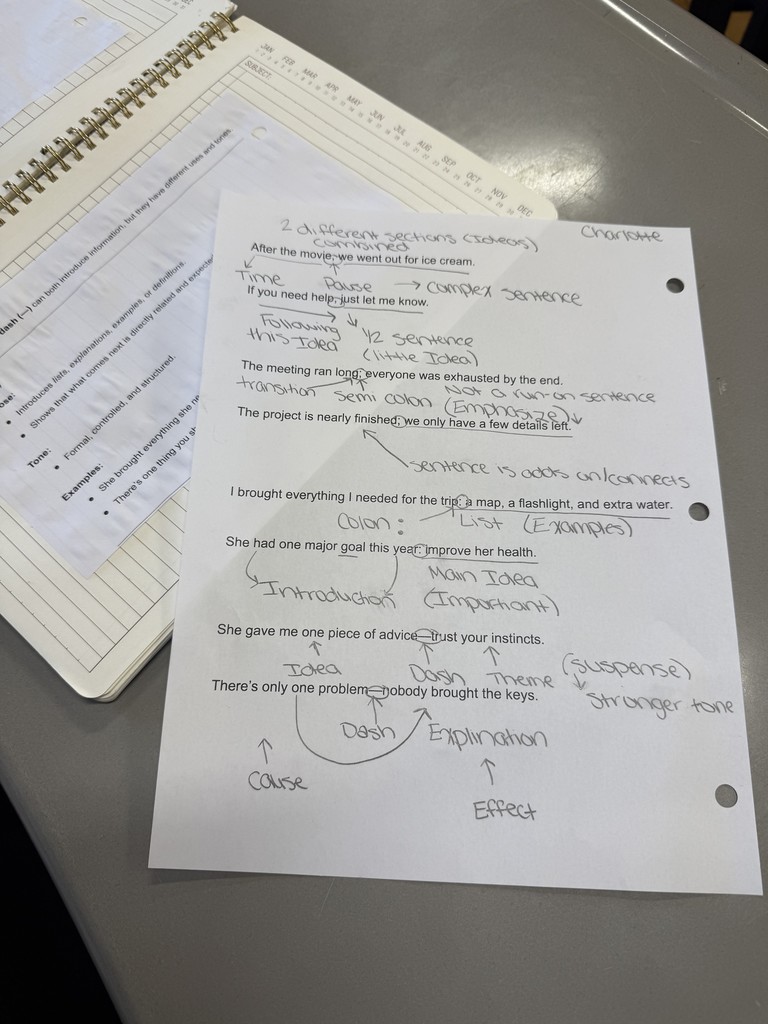 JAN FEB MAR APR MAY JUN JUL AUG SEP OCT NOV DEC
SUBJECT:
dash (—) can both introduce information, but they have different uses and tones
Introduces lists, explanations, examples, or definitions.
Shows that what comes next is directly related and expected
Tone:
Formal, controlled, and structured.
Examples:
She brought everything she ne
There's one thing you sh
Charlotte
2 different sections (Ideas)
combined
After the movie, we went out for ice cream.
Time Pause → complex sentence
If you need help, just let me know.
Following 1/2 sentence
this Idea (little Idea)
The meeting ran long; everyone was exhausted by the end.
transition semi colon Not a run-on sentence
(Emphasize)
The project is nearly finished; we only have a few details left.
sentence is adds on/connects
I brought everything I needed for the trip: a map, a flashlight, and extra water.
Colon : List (Examples)
She had one major goal this year: improve her health.
Introduction Main Idea
(Important)
She gave me one piece of advice—trust your instincts.
Idea Dash Theme (suspense)
Stronger tone
There's only one problem—nobody brought the keys.
Dash Explination
Cause
Effect